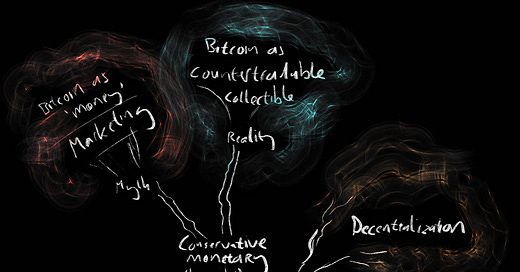 Bitcoin as
'money'
Marketing
Myth
Bitcoin as
Countertradable
Collectible
Reality
Decentralization
Conservative
monetary